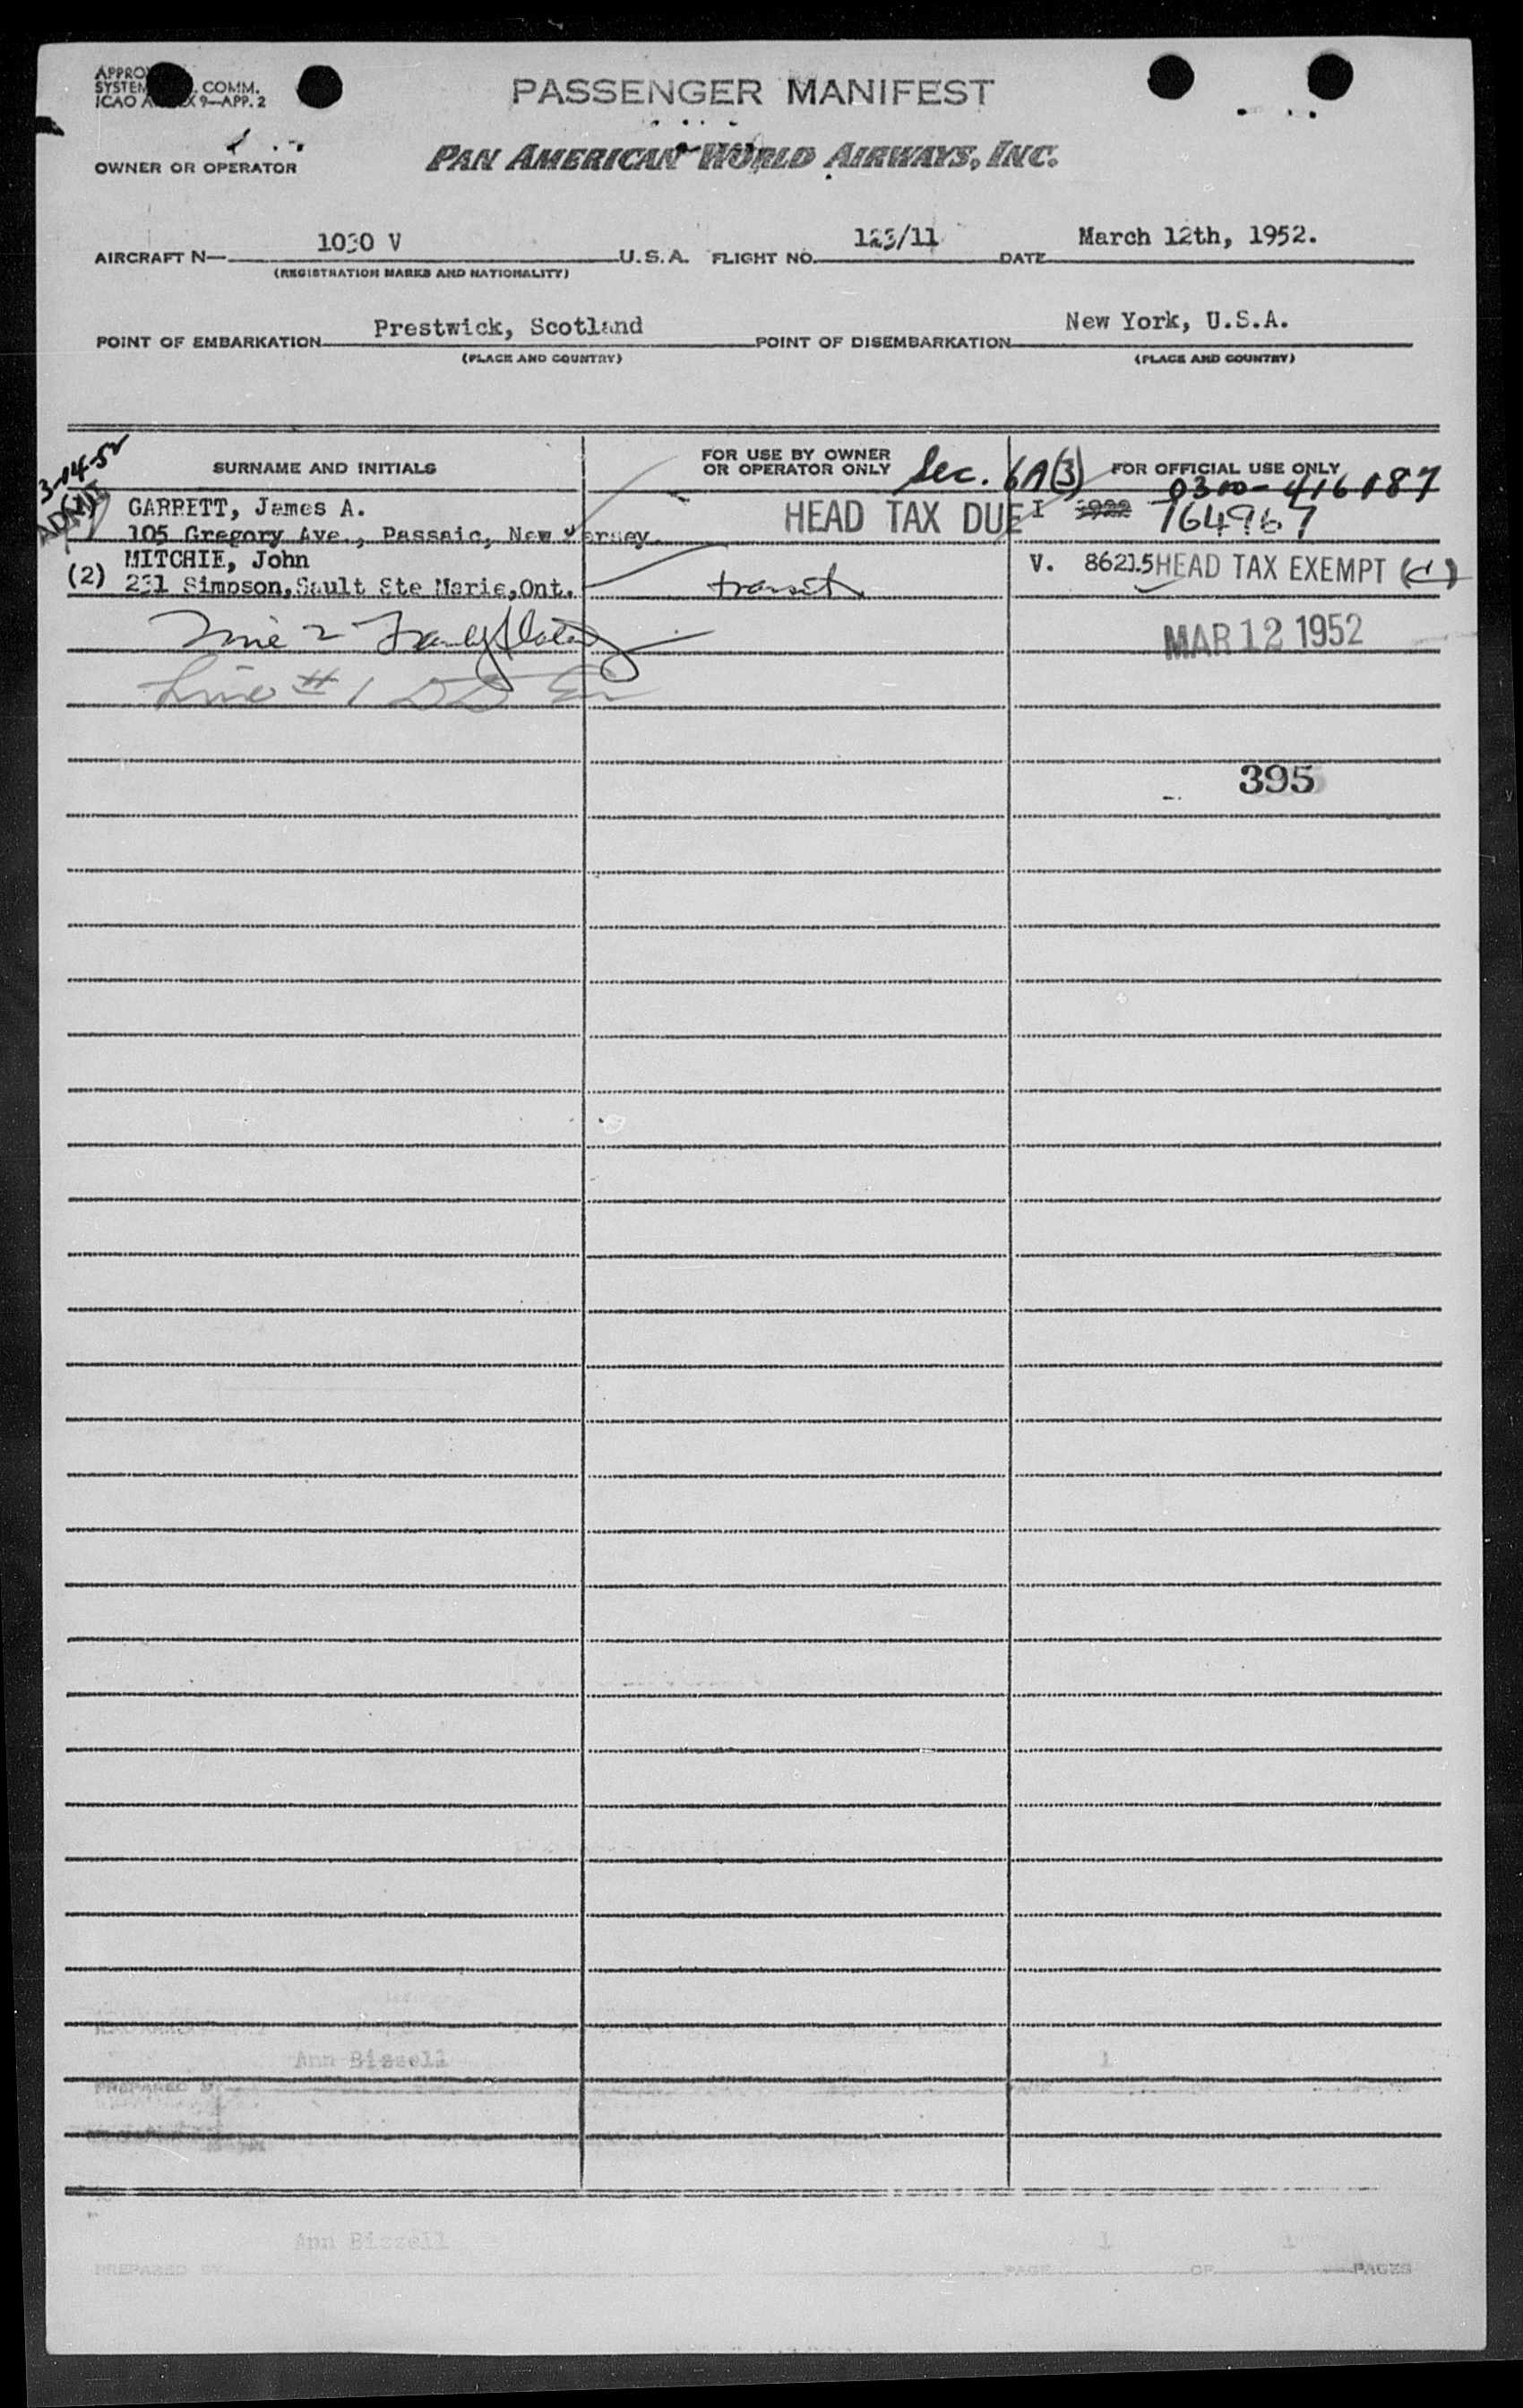 PASSENGER MANIFEST
COMM.
9—APP. 2
OWNER OR OPERATOR PAN AMERICAN WORLD AIRWAYS, INC.
AIRCRAFT N— 1030 V U.S.A. FLIGHT NO. 123/11 DATE March 12th, 1952.
(REGISTRATION MARKS AND NATIONALITY)
POINT OF EMBARKATION Prestwick, Scotland POINT OF DISEMBARKATION New York, U.S.A.
(PLACE AND COUNTRY) (PLACE AND COUNTRY)
3-14-52
SURNAME AND INITIALS FOR USE BY OWNER OR OPERATOR ONLY Sec. 6A(3) FOR OFFICIAL USE ONLY
ADMIT 0300-416187
GARRETT, James A. HEAD TAX DUE I 764967
105 Gregory Ave., Passaic, New Jersey.
MITCHIE, John V. 86215 HEAD TAX EXEMPT (C)
(2) 231 Simpson, Sault Ste Marie, Ont. transit
MAR 12 1952
Line # 1
395
Ann Bissell 1
PREPARED BY
Ann Bissell 1 1
PREPARED BY PAGE OF PAGES